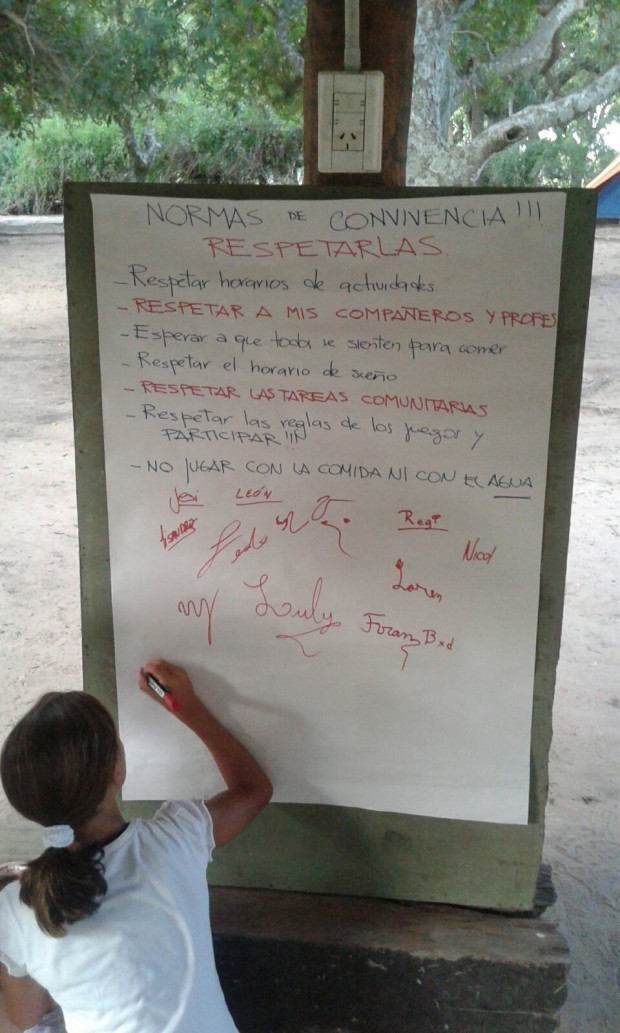 NORMAS DE CONVIVENCIA!!!
RESPETARLAS
- Respetar horarios de actividades
- RESPETAR A MIS COMPAÑEROS Y PROFES
- Esperar a que todos se sienten para comer
- Respetar el horario de sueño
- RESPETAR LAS TAREAS COMUNITARIAS
- Respetar las reglas de los juegos y
PARTICIPAR!!!
- NO JUGAR CON LA COMIDA NI CON EL AGUA
Jesi LEÓN
Regi
Fede Nicol
Loren
Luly Fran Bxd